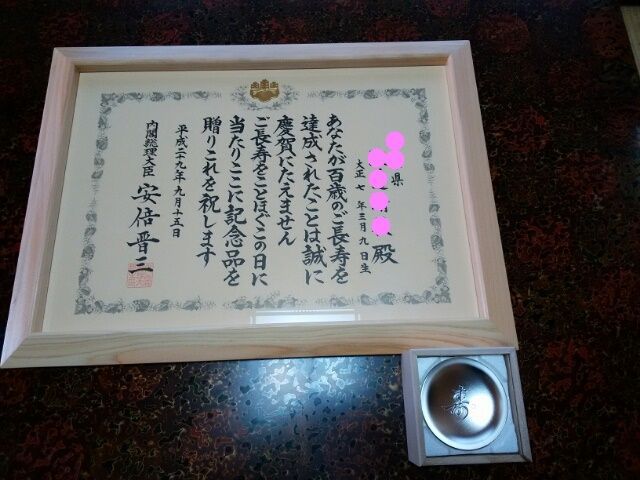 県
殿
大正七年三月九日生
あなたが百歳のご長寿を
達成されたことは誠に
慶賀にたえません
ご長寿をことほぐこの日に
当たりここに記念品を
贈りこれを祝します
平成二十九年九月十五日
内閣総理大臣 安倍晋三
寿